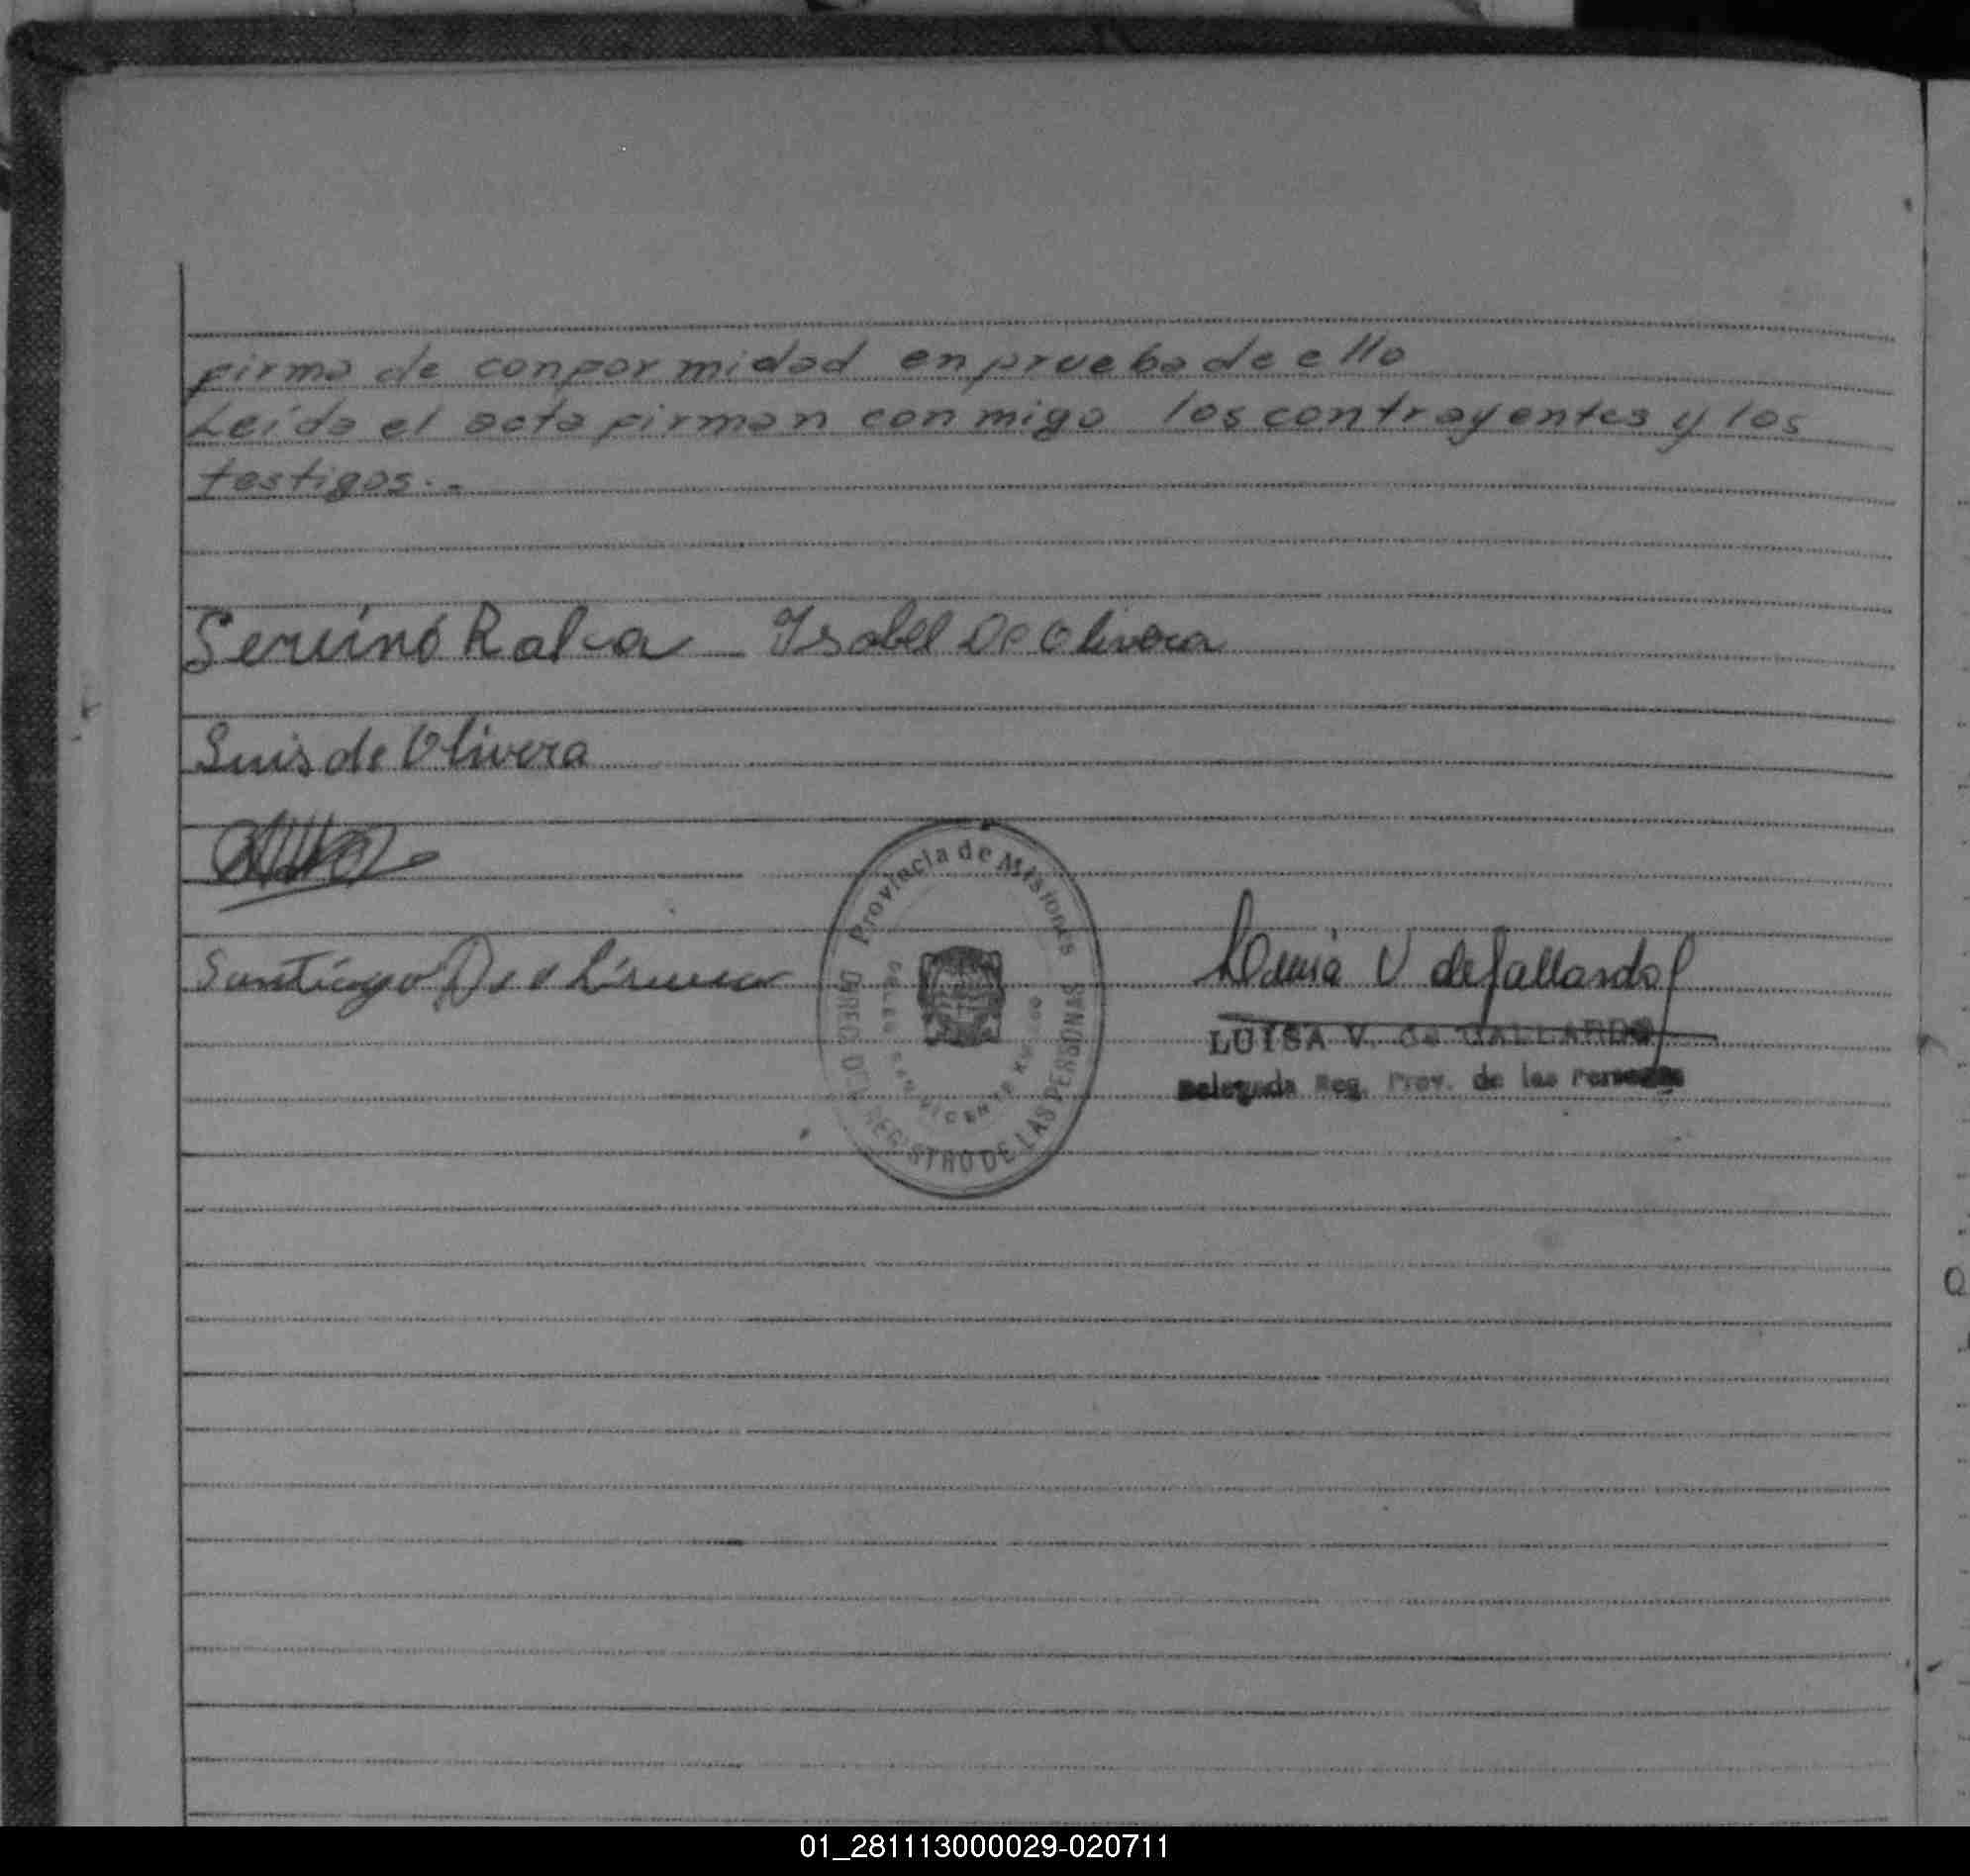 firma de conformidad en prueba de ello
Leída el acta firman conmigo los contrayentes y los
testigos.-
Isabel De Olivera
Luis de Olivera
Santiago De
Provincia de Misiones
DIREC. DEL REGISTRO DE LAS PERSONAS
Luisa V de Gallardo
LUISA V. de GALLARDO
Delegada Reg. Prov. de las Personas
01_281113000029-020711